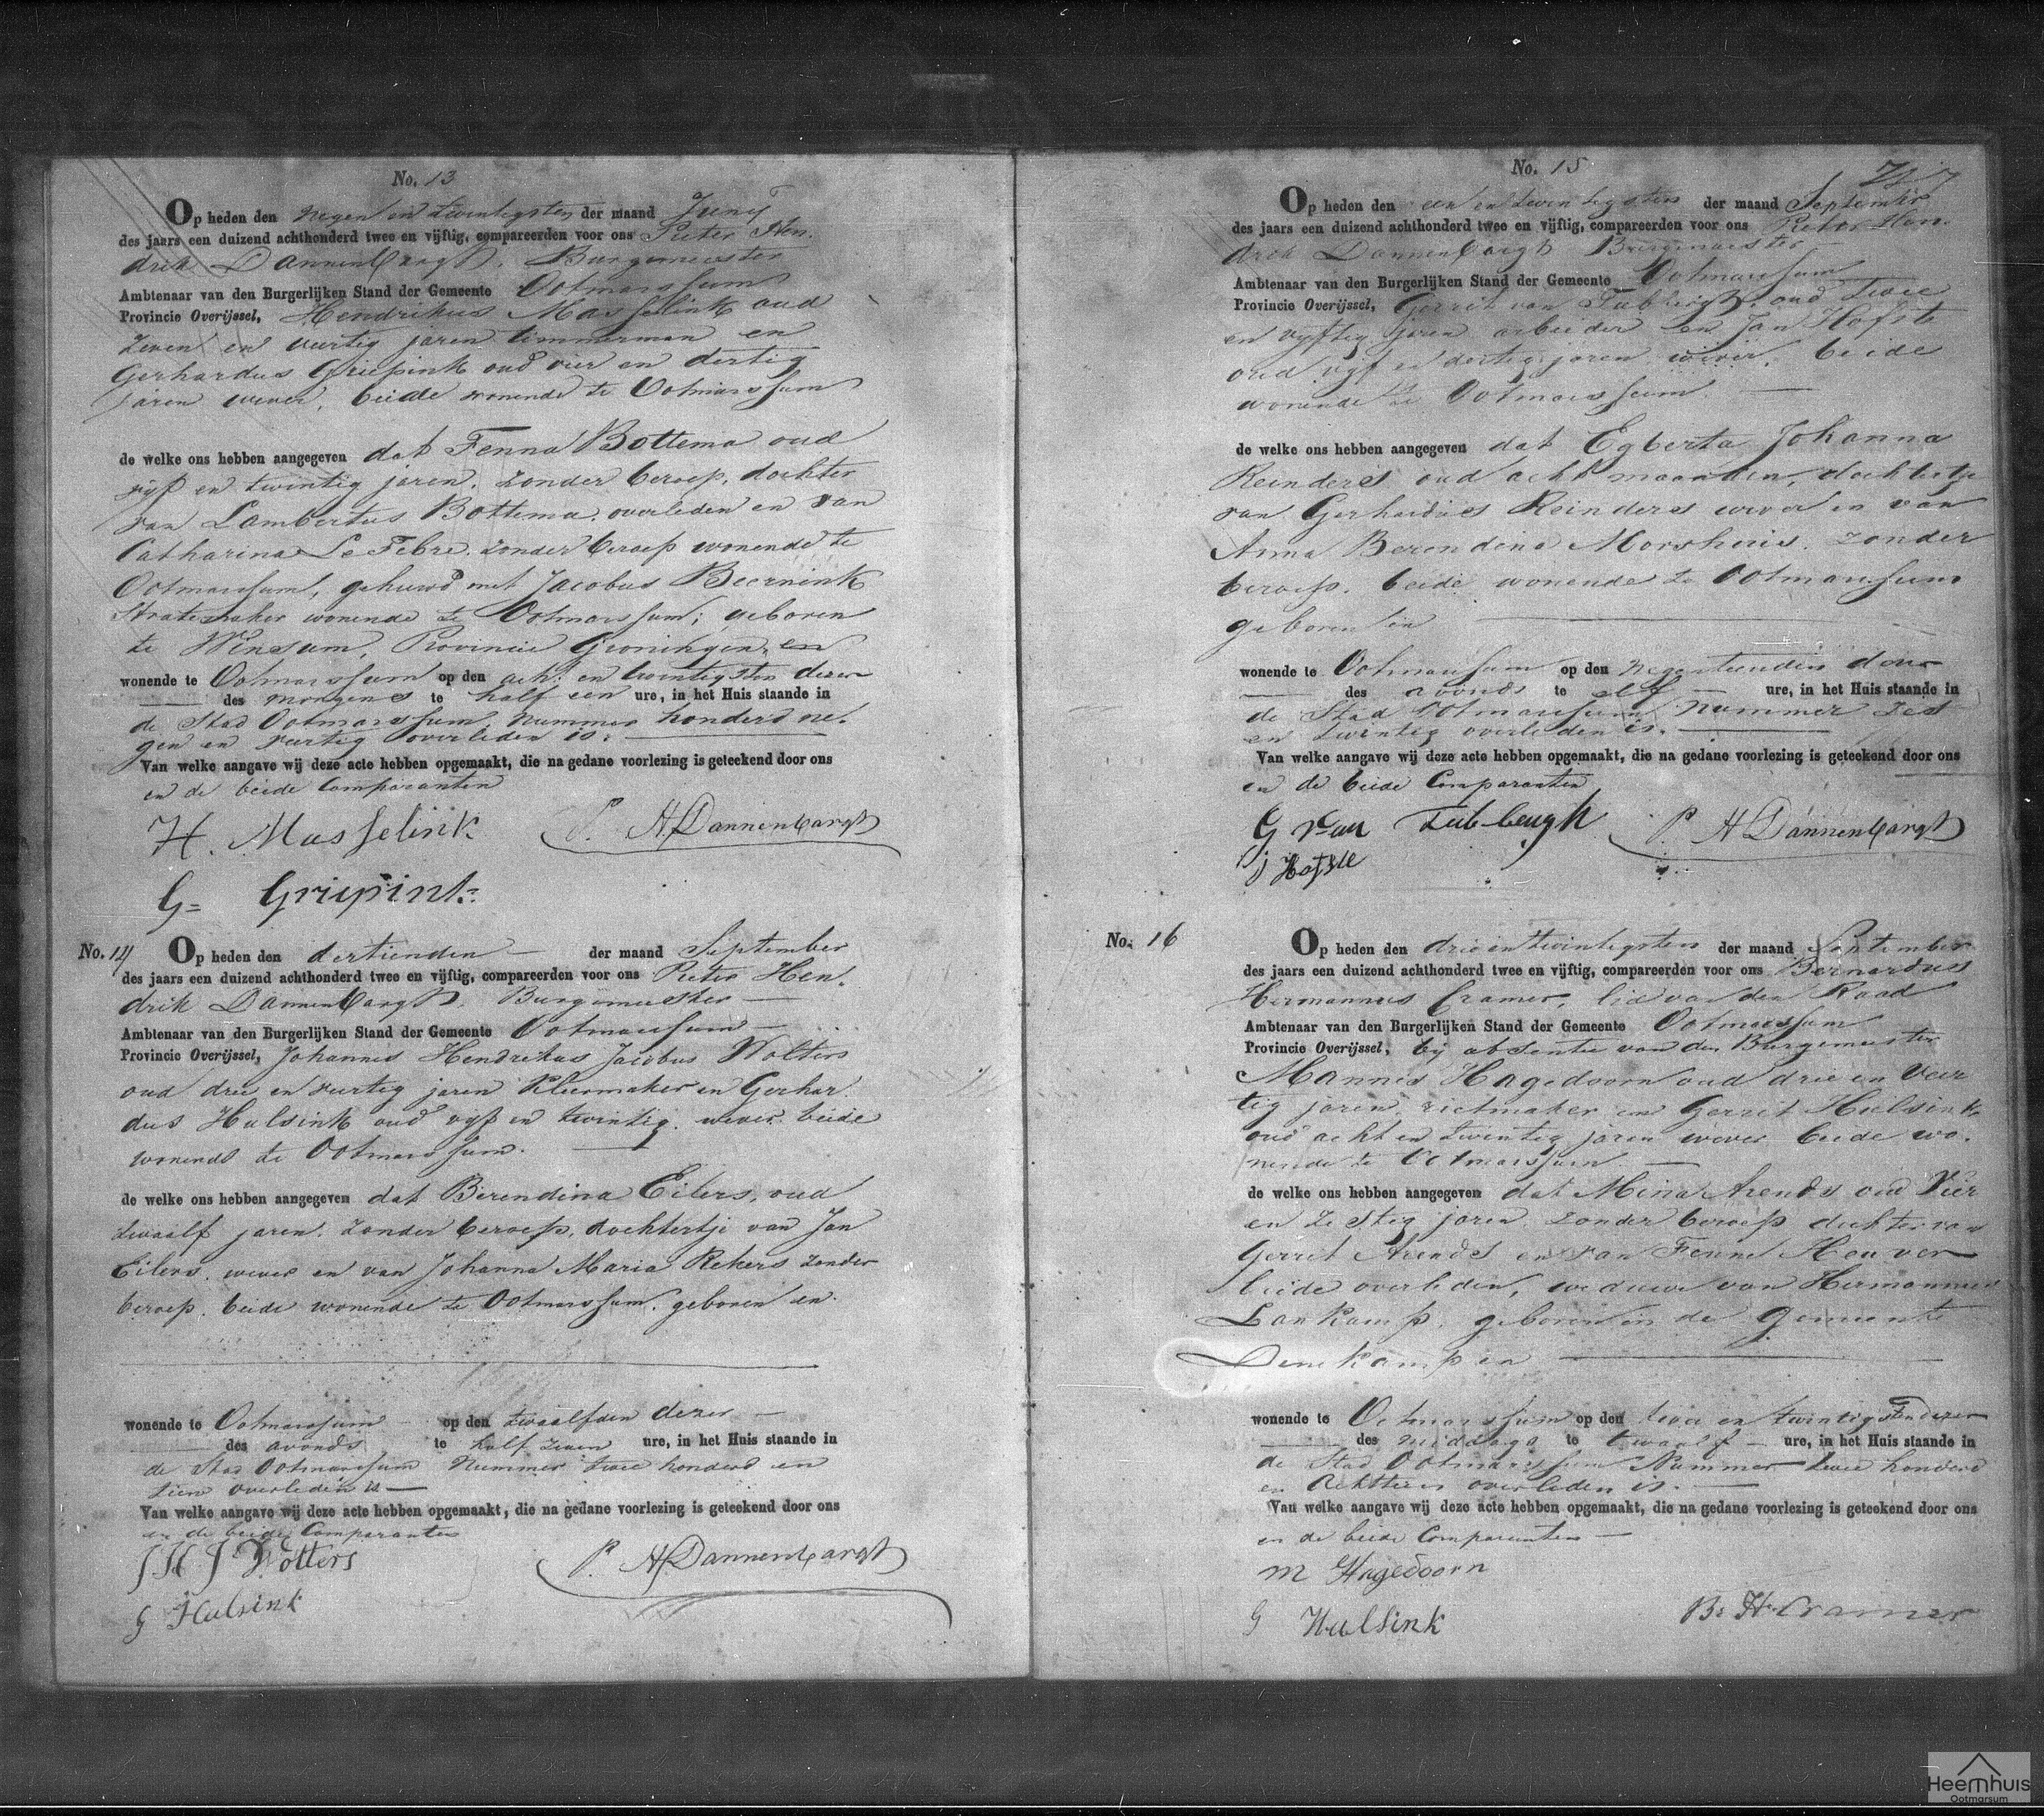 No. 13
Op heden den negen en twintigsten der maand Junij
des jaars een duizend achthonderd twee en vijftig, compareerden voor ons Pieter Hen-
drik Dannenbargh, Burgemeester
Ambtenaar van den Burgerlijken Stand der Gemeente Ootmarssum
Provincie Overijssel, Hendrikus Masselink oud
zeven en veertig jaren timmerman en
Gerhardus Griepink oud vier en dertig
jaren wever, beide wonende te Ootmarssum
de welke ons hebben aangegeven dat Fenna Bottema oud
vyf en twintig jaren, zonder beroep, dochter
van Lambertus Bottema, overleden en van
Catharina Le Febre, zonder beroep wonende te
Ootmarssum, gehuwd met Jacobus Beernink
Stratemaker wonende te Ootmarssum; geboren
te Winsum, Provincie Groningen, en
wonende te Ootmarssum op den acht en twintigsten dezer
des morgens te half een ure, in het Huis staande in
de Stad Ootmarssum, nummer honderd ne-
gen en veertig overleden is.
Van welke aangave wij deze acte hebben opgemaakt, die na gedane voorlezing is geteekend door ons
en de beide Comparanten
H. Masselink P. H Dannenbargh
G= Griepink
No. 14 Op heden den dertienden der maand September
des jaars een duizend achthonderd twee en vijftig, compareerden voor ons Pieter Hen-
drik Dannenbargh, Burgemeester
Ambtenaar van den Burgerlijken Stand der Gemeente Ootmarssum
Provincie Overijssel, Johannes Hendrikus Jacobus Wolters
oud drie en veertig jaren kleermaker en Gerhar-
dus Hulsink oud vyf en twintig, wever beide
wonende te Ootmarssum.
de welke ons hebben aangegeven dat Berendina Eilers, oud
twaalf jaren, zonder beroep, dochtertje van Jan
Eilers, wever en van Johanna Maria Rekers zonder
beroep, beide wonende te Ootmarssum, geboren en
wonende te Ootmarssum op den twaalfden dezer
des avonds te half zeven ure, in het Huis staande in
de Stad Ootmarssum Nummer twee honderd en
tien overleden is
Van welke aangave wij deze acte hebben opgemaakt, die na gedane voorlezing is geteekend door ons
en de beide Comparanten
J H J Wolters P. H Dannenbargh
G Hulsink
No. 15
Op heden den een en twintigsten der maand September
des jaars een duizend achthonderd twee en vijftig, compareerden voor ons Pieter Hen-
drik Dannenbargh Burgemeester
Ambtenaar van den Burgerlijken Stand der Gemeente Ootmarssum
Provincie Overijssel, Gerrit van Tubbergh, oud twee
en vyftig jaren arbeider en Jan Hofste
oud vyf en dertig jaren wever, beide
wonende te Ootmarssum.
de welke ons hebben aangegeven dat Egberta Johanna
Reinders oud acht maanden, dochtertje
van Gerhardus Reinders wever en van
Anna Berendina Morshuis, zonder
beroep, beide wonende te Ootmarssum
geboren en
wonende te Ootmarssum op den negentienden dezer
des avonds te elf ure, in het Huis staande in
de Stad Ootmarssum nummer zes
en twintig overleden is.
Van welke aangave wij deze acte hebben opgemaakt, die na gedane voorlezing is geteekend door ons
en de beide Comparanten
G van Tubbergh P. H Dannenbargh
J Hofste
No. 16 Op heden den drie en twintigsten der maand September
des jaars een duizend achthonderd twee en vijftig, compareerden voor ons Bernardus
Hermannus Cramer, lid van den Raad
Ambtenaar van den Burgerlijken Stand der Gemeente Ootmarssum
Provincie Overijssel, bij absentie van den Burgemeester
Mannes Hagedoorn oud drie en veer-
tig jaren, rietmaker en Gerrit Hulsink
oud acht en twintig jaren wever beide wo-
nende te Ootmarssum
de welke ons hebben aangegeven dat Mina Arends oud Vier
en zestig jaren, zonder beroep dochter van
Gerrit Arends en van Fenne Heuver
beide overleden, weduwe van Hermannus
Lankamp, geboren in de Gemeente
Denekamp en
wonende te Ootmarssum op den twee en twintigsten dezer
des middags te twaalf ure, in het Huis staande in
de Stad Ootmarssum Nummer twee honderd
en Achttien overleden is.
Van welke aangave wij deze acte hebben opgemaakt, die na gedane voorlezing is geteekend door ons
en de beide Comparanten
M Hagedoorn
G Hulsink B: H. Cramer
Heemhuis
Ootmarsum